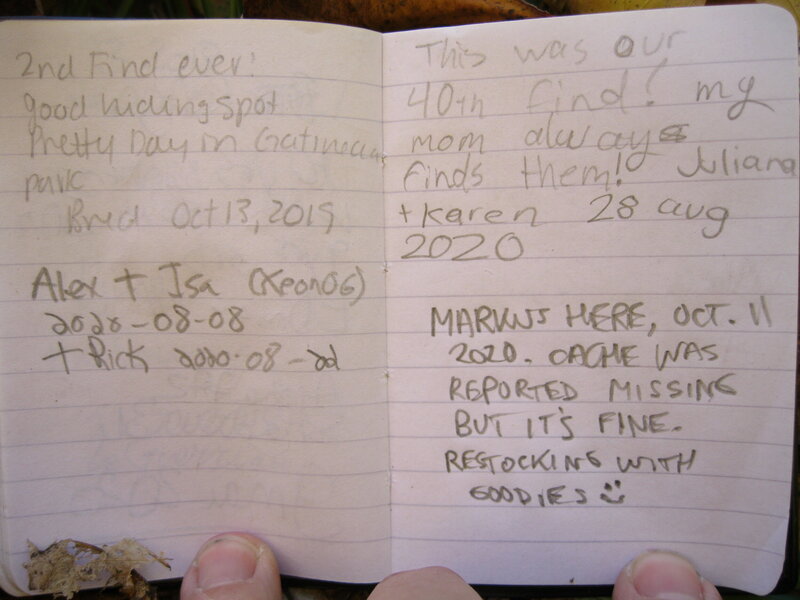 2nd Find ever!
good hiding spot
Pretty Day in Gatineau
park
Bred Oct 13, 2019
Alex + Isa (Xeon06)
2020-08-08
+ Rick 2020-08-22
This was our
40th find! my
mom always
finds them! Juliana
+ Karen 28 aug
2020
MARKUS HERE, OCT. 11
2020. CACHE WAS
REPORTED MISSING
BUT IT'S FINE.
RESTOCKING WITH
GOODIES :)